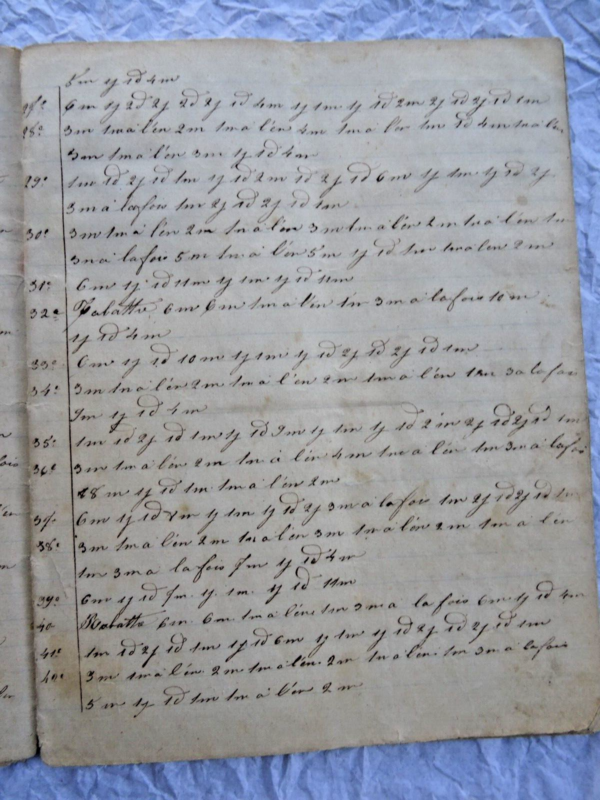 5m y 1d 4m
27e 6m y 2d 2j 2d 2j 1d 4m y 1m y 1d 2m 2j 1d 2j 1d 1m
28e 3m 1m à l'en 2m 1m à l'en 4m 1m à l'en 1m 1d 4m 1m à l'en
3m 1m à l'en 3m y 1d 4m
29e 1m 1d 2j 1d 1m y 1d 2m 1d 2j 1d 6m y 1m y 1d 2j
3m à la fois 1m 2j 1d 2j 1d 1m
30e 3m 1m à l'en 2m 1m à l'en 3m 1m à l'en 2m 1m à l'en 1m
3m à la fois 5m 1m à l'en 5m y 1d 1m 1m à l'en 2m
31e 6m y 1d 11m y 1m y 1d 11m
32e Rabatte 6m 6m 1m à l'en 1m 3m à la fois 10m
y 1d 4m
33e 6m y 1d 10m y 1m y 1d 2j 1d 2j 1d 1m
34e 3m 1m à l'en 2m 1m à l'en 2m 1m à l'en 1m 3 à la fois
9m y 1d 4m
35e 1m 1d 2j 1d 1m y 1d 9m y 1m y 1d 2m 2j 1d 2j 1d 1m
36e 3m 1m à l'en 2m 1m à l'en 4m 1m à l'en 1m 3m à la fois
8m y 1d 1m 1m à l'en 2m
37e 6m y 1d 8m y 1m y 1d 2j 3m à la fois 1m 2j 1d 2j 1d 1m
38e 3m 1m à l'en 2m 1m à l'en 3m 1m à l'en 2m 1m à l'en
1m 3m à la fois 7m y 1d 4m
39e 6m y 1d 7m y 1m y 1d 11m
40 Rabatte 6m 6m 1m à l'en 1m 3m à la fois 6m y 1d 4m
41e 1m 1d 2j 1d 1m y 1d 6m y 1m y 1d 2j 1d 2j 1d 1m
42e 3m 1m à l'en 2m 1m à l'en 2m 1m à l'en 1m 3m à la fois
5m y 1d 1m 1m à l'en 2m